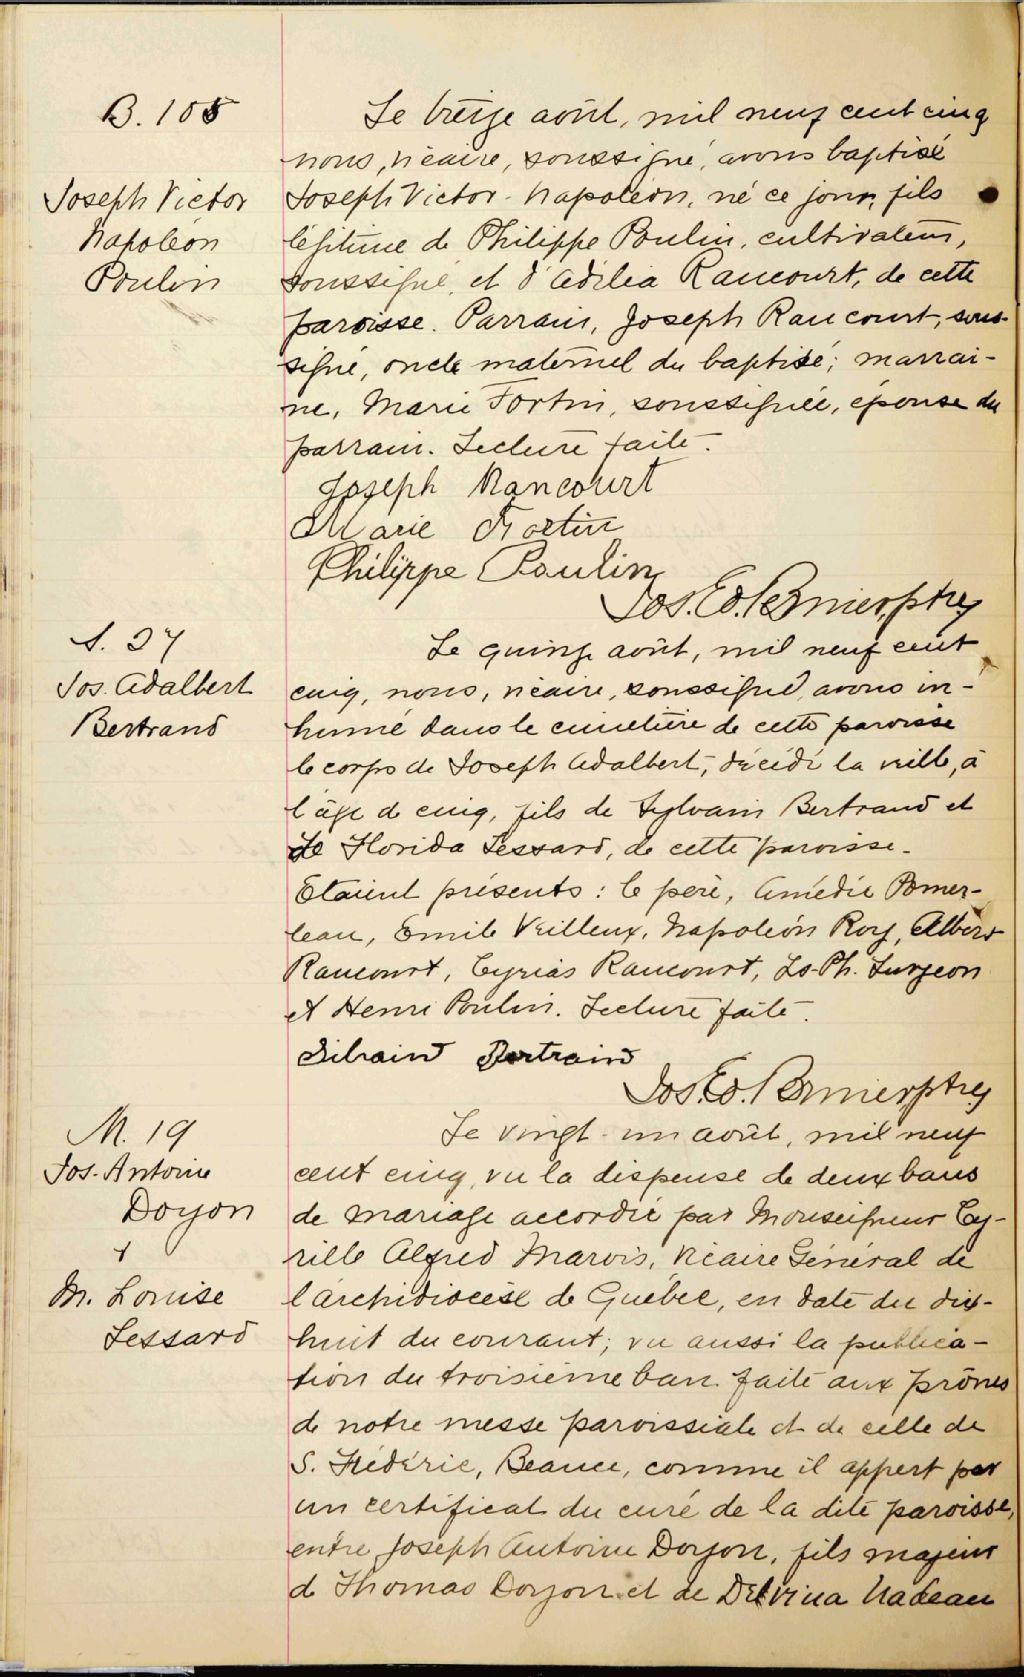 B. 105
Joseph Victor
Napoléon
Poulin
Le treize août, mil neuf cent cinq
nous, vicaire, soussigné, avons baptisé
Joseph Victor Napoléon, né ce jour, fils
légitime de Philippe Poulin, cultivateur,
soussigné, et d'Adélia Rancourt, de cette
paroisse. Parrain, Joseph Rancourt, sous-
signé, oncle maternel du baptisé; marrai-
ne, Marie Fortin, soussignée, épouse du
parrain. Lecture faite.
Joseph Rancourt
Marie Fortin
Philippe Poulin
Jos. Ed. Bernier, ptre
S. 27
Jos. Adalbert
Bertrand
Le quinze août, mil neuf cent
cinq, nous, vicaire, soussigné, avons in-
humé dans le cimetière de cette paroisse
le corps de Joseph Adalbert, décédé la veille, à
l'âge de cinq, fils de Sylvain Bertrand et
de Florida Lessard, de cette paroisse.
Etaient présents: le père, Amédée Pomer-
leau, Emile Veilleux, Napoléon Roy, Albert
Rancourt, Cyrias Rancourt, Ls-Ph. Turgeon
et Henri Poulin. Lecture faite.
Silvaind Bertraind
Jos. Ed. Bernier ptre
M. 19
Jos. Antoine
Doyon
&
M. Louise
Lessard
Le vingt-un août, mil neuf
cent cinq, vu la dispense de deux bans
de mariage accordée par Monseigneur Cy-
rille Alfred Marois, Vicaire Général de
l'archidiocèse de Québec, en date du dix-
huit du courant; vu aussi la publica-
tion du troisième ban faite aux prônes
de notre messe paroissiale et de celle de
S. Frédéric, Beauce, comme il appert par
un certificat du curé de la dite paroisse,
entre Joseph Antoine Doyon, fils majeur
de Thomas Doyon et de Delvina Nadeau